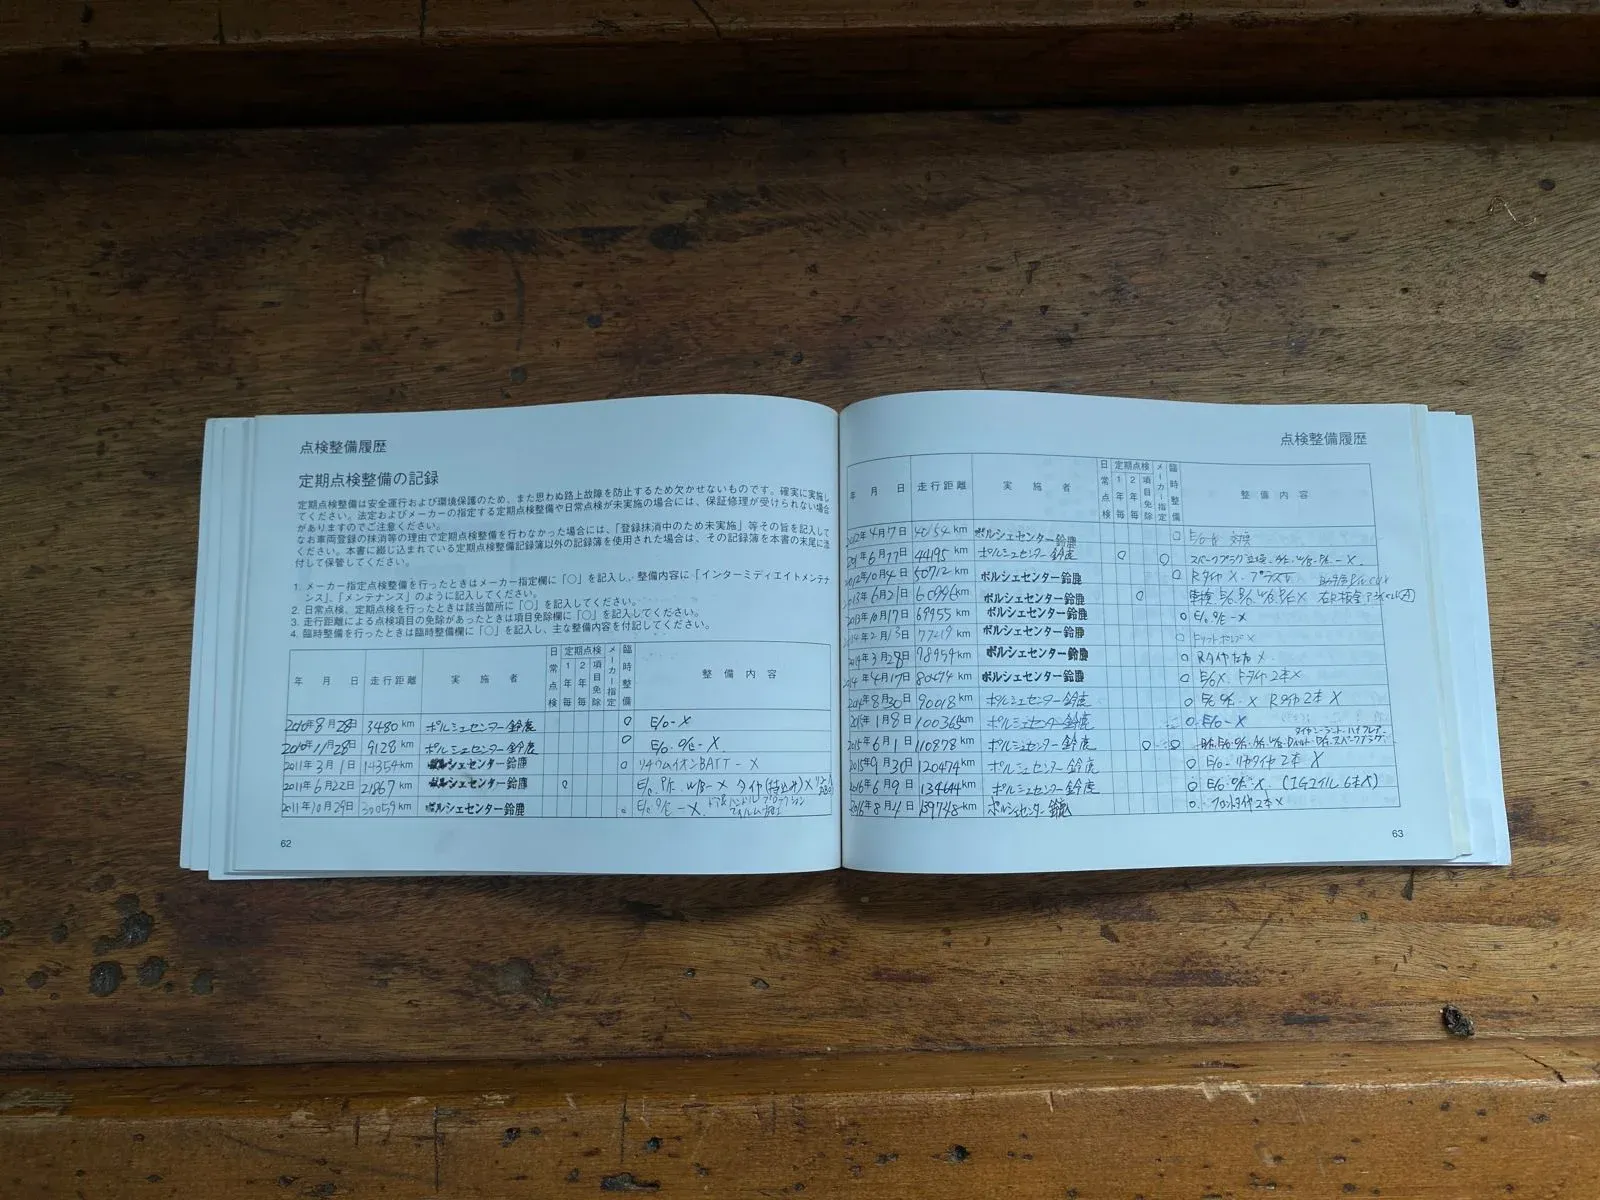 点検整備履歴
定期点検整備の記録
定期点検整備は安全運行および環境保護のため、また思わぬ路上故障を防止するため欠かせないものです。確実に実施し
てください。法定およびメーカーの指定する定期点検整備や日常点検が未実施の場合には、保証修理が受けられない場合
がありますのでご注意ください。
なお車両登録の抹消等の理由で定期点検整備を行わなかった場合には、「登録抹消中のため未実施」等その旨を記入して
ください。本書に綴じ込まれている定期点検整備記録簿以外の記録簿を使用された場合は、その記録簿を本書の末尾に添
付して保管してください。
1. メーカー指定点検整備を行ったときはメーカー指定欄に「○」を記入し、整備内容に「インターミディエイトメンテナ
ンス」、「メンテナンス」のように記入してください。
2. 日常点検、定期点検を行ったときは該当箇所に「○」を記入してください。
3. 走行距離による点検項目の免除があったときは項目免除欄に「○」を記入してください。
4. 臨時整備を行ったときは臨時整備欄に「○」を記入し、主な整備内容を付記してください。
年 月 日 走行距離 実施者 日常点検 定期点検 1年毎 2年毎 項目免除 メーカー指定 臨時整備 整備内容
2010年8月28日 3480 km ポルシェセンター鈴鹿 ○ E/o-X
2010年11月28日 9128 km ポルシェセンター鈴鹿 ○ E/o. O/E-X
2011年3月1日 14354 km ポルシェセンター鈴鹿 ○ リチウムイオンBATT-X
2011年6月22日 21867 km ポルシェセンター鈴鹿 ○ E/o. P/E. W/B-X タイヤ(持込み)X
2011年10月29日 30059 km ポルシェセンター鈴鹿 ○ E/o. O/E-X.
62
点検整備履歴
年 月 日 走行距離 実施者 日常点検 定期点検 1年毎 2年毎 項目免除 メーカー指定 臨時整備 整備内容
2012年4月7日 km ポルシェセンター鈴鹿 ○
年6月17日 44195 km ポルシェセンター鈴鹿 ○ ○ スパークプラグ
2012年10月4日 50712 km ポルシェセンター鈴鹿 ○ RタイヤX.
2013年6月21日 km ポルシェセンター鈴鹿 ○ 車検
2013年10月17日 69955 km ポルシェセンター鈴鹿 ○ E/o. O/E-X
2014年2月 日 77219 km ポルシェセンター鈴鹿 ○
2014年3月28日 78954 km ポルシェセンター鈴鹿 ○ Rタイヤ左右X
2014年4月17日 80474 km ポルシェセンター鈴鹿 ○ E/oX. Fタイヤ2本X
2014年8月30日 90018 km ポルシェセンター鈴鹿 ○ X Rタイヤ2本X
2015年1月8日 100365 km ポルシェセンター鈴鹿 ○ E/o-X
2015年6月1日 110878 km ポルシェセンター鈴鹿 ○ ○ スパークプラグ
2015年9月30日 120474 km ポルシェセンター鈴鹿 ○ E/o- リヤタイヤ2本X
2016年6月9日 134644 km ポルシェセンター鈴鹿 ○ E/o. O/E-X. (IGコイル6本X)
2016年8月 日 139748 km ポルシェセンター鈴鹿 ○ フロントタイヤ2本X
63